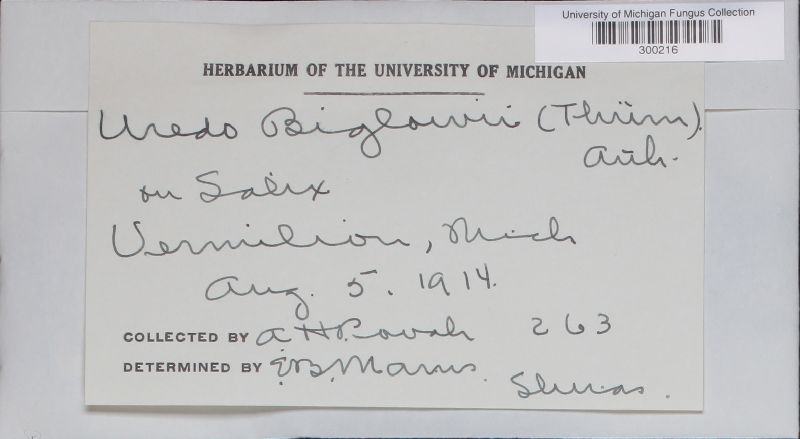 University of Michigan Fungus Collection
300216
HERBARIUM OF THE UNIVERSITY OF MICHIGAN
Uredo Biglowii (Thüm).
Arth.
on Salix
Vermilion, Mich
Aug. 5. 1914.
COLLECTED BY A H Povah 263
DETERMINED BY E.B. Mains.